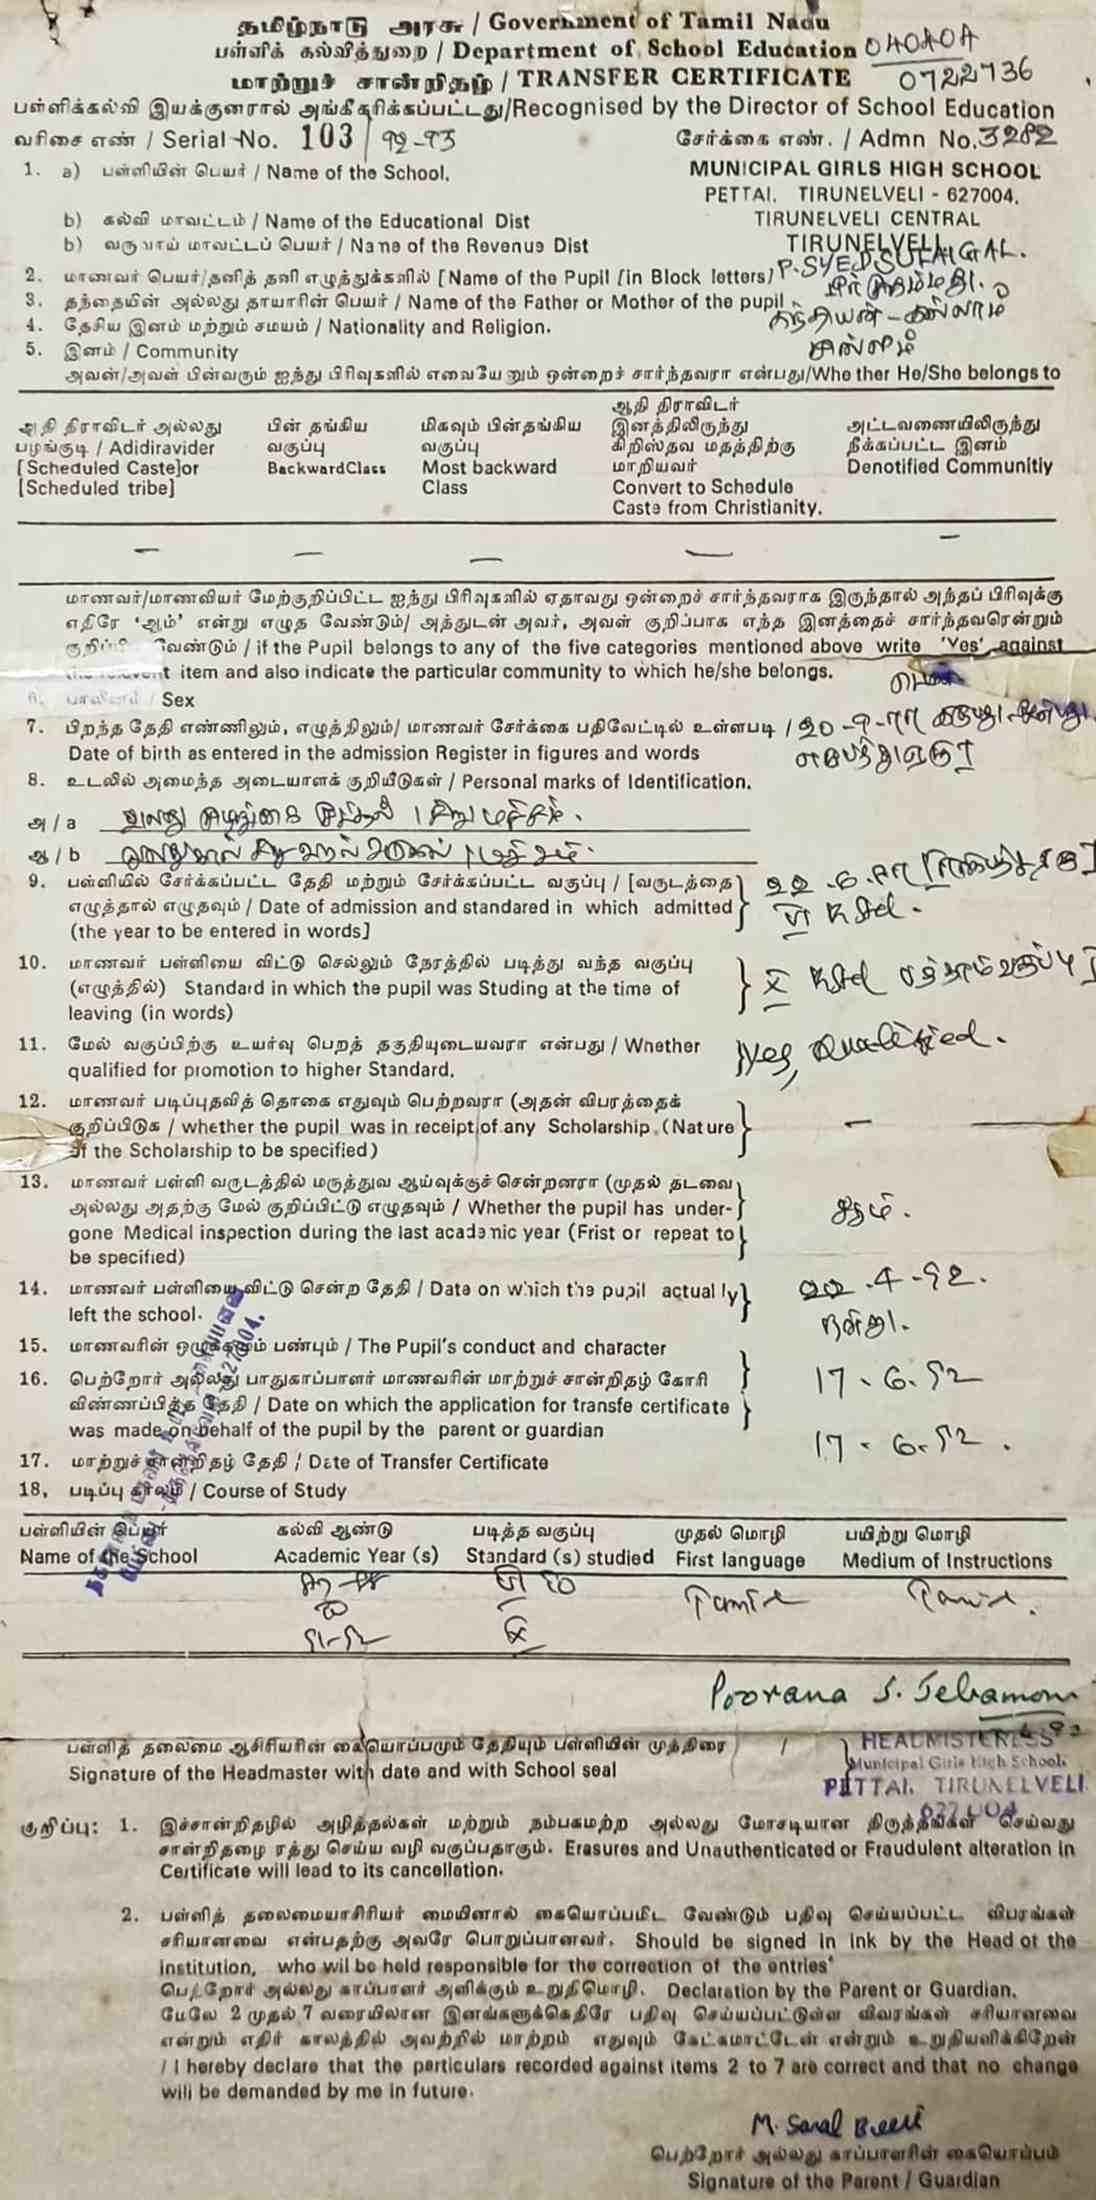 தமிழ்நாடு அரசு / Government of Tamil Nadu
பள்ளிக் கல்வித்துறை / Department of School Education 040404
மாற்றுச் சான்றிதழ் / TRANSFER CERTIFICATE 0722736
பள்ளிக்கல்வி இயக்குனரால் அங்கீகரிக்கப்பட்டது/Recognised by the Director of School Education
வரிசை எண் / Serial No. 103 / 92-93 சேர்க்கை எண். / Admn No. 3282
1. a) பள்ளியின் பெயர் / Name of the School. MUNICIPAL GIRLS HIGH SCHOOL
PETTAI. TIRUNELVELI - 627004.
b) கல்வி மாவட்டம் / Name of the Educational Dist TIRUNELVELI CENTRAL
b) வருவாய் மாவட்டப் பெயர் / Name of the Revenue Dist TIRUNELVELI.
2. மாணவர் பெயர்/தனித் தனி எழுத்துக்களில் [Name of the Pupil [in Block letters) P. SYED SULAIGAL.
3. தந்தையின் அல்லது தாயாரின் பெயர் / Name of the Father or Mother of the pupil
4. தேசிய இனம் மற்றும் சமயம் / Nationality and Religion. இந்தியன் - இஸ்லாம்
5. இனம் / Community
அவன்/அவள் பின்வரும் ஐந்து பிரிவுகளில் எவையேனும் ஒன்றைச் சார்ந்தவரா என்பது/Whe ther He/She belongs to
ஆதி திராவிடர் அல்லது பழங்குடி / Adidiravider [Scheduled Caste]or [Scheduled tribe]
பின் தங்கிய வகுப்பு BackwardClass
மிகவும் பின்தங்கிய வகுப்பு Most backward Class
ஆதி திராவிடர் இனத்திலிருந்து கிறிஸ்தவ மதத்திற்கு மாறியவர் Convert to Schedule Caste from Christianity.
அட்டவணையிலிருந்து நீக்கப்பட்ட இனம் Denotified Communitiy
— — — — —
மாணவர்/மாணவியர் மேற்குறிப்பிட்ட ஐந்து பிரிவுகளில் ஏதாவது ஒன்றைச் சார்ந்தவராக இருந்தால் அந்தப் பிரிவுக்கு
எதிரே ‘ஆம்’ என்று எழுத வேண்டும்/ அத்துடன் அவர், அவள் குறிப்பாக எந்த இனத்தைச் சார்ந்தவரென்றும்
வேண்டும் / if the Pupil belongs to any of the five categories mentioned above write 'Yes' against
item and also indicate the particular community to which he/she belongs.
6. பாலினம் / Sex பெண்
7. பிறந்த தேதி எண்ணிலும், எழுத்திலும்/ மாணவர் சேர்க்கை பதிவேட்டில் உள்ளபடி / 20-9-77
Date of birth as entered in the admission Register in figures and words
8. உடலில் அமைந்த அடையாளக் குறியீடுகள் / Personal marks of Identification.
அ / a
ஆ / b
9. பள்ளியில் சேர்க்கப்பட்ட தேதி மற்றும் சேர்க்கப்பட்ட வகுப்பு / [வருடத்தை
எழுத்தால் எழுதவும் / Date of admission and standared in which admitted
(the year to be entered in words] VI Std.
10. மாணவர் பள்ளியை விட்டு செல்லும் நேரத்தில் படித்து வந்த வகுப்பு
(எழுத்தில்) Standard in which the pupil was Studing at the time of X Std பத்தாம் வகுப்பு
leaving (in words)
11. மேல் வகுப்பிற்கு உயர்வு பெறத் தகுதியுடையவரா என்பது / Whether Yes, Qualified.
qualified for promotion to higher Standard.
12. மாணவர் படிப்புதவித் தொகை எதுவும் பெற்றவரா (அதன் விபரத்தைக்
குறிப்பிடுக / whether the pupil was in receipt of any Scholarship. (Nature —
of the Scholarship to be specified)
13. மாணவர் பள்ளி வருடத்தில் மருத்துவ ஆய்வுக்குச் சென்றனரா (முதல் தடவை
அல்லது அதற்கு மேல் குறிப்பிட்டு எழுதவும் / Whether the pupil has under- ஆம்.
gone Medical inspection during the last academic year (Frist or repeat to
be specified)
14. மாணவர் பள்ளியை விட்டு சென்ற தேதி / Date on which the pupil actual ly 22.4-92.
left the school.
15. மாணவரின் ஒழுக்கமும் பண்பும் / The Pupil's conduct and character நன்று.
16. பெற்றோர் அல்லது பாதுகாப்பாளர் மாணவரின் மாற்றுச் சான்றிதழ் கோரி 17-6-92
விண்ணப்பித்த தேதி / Date on which the application for transfe certificate
was made on behalf of the pupil by the parent or guardian
17. மாற்றுச் சான்றிதழ் தேதி / Date of Transfer Certificate 17-6-92.
18, படிப்பு காலம் / Course of Study
பள்ளியின் பெயர் கல்வி ஆண்டு படித்த வகுப்பு முதல் மொழி பயிற்று மொழி
Name of the School Academic Year (s) Standard (s) studied First language Medium of Instructions
87-88 VI to Tamil Tamil.
to
91-92 X
Poorana J. Jebamoni
பள்ளித் தலைமை ஆசிரியரின் கையொப்பமும் தேதியும் பள்ளியின் முத்திரை HEADMISTRESS
Signature of the Headmaster with date and with School seal Municipal Girls High School.
PETTAI, TIRUNELVELI
627 004
குறிப்பு: 1. இச்சான்றிதழில் அழித்தல்கள் மற்றும் நம்பகமற்ற அல்லது மோசடியான திருத்தங்கள் செய்வது
சான்றிதழை ரத்து செய்ய வழி வகுப்பதாகும். Erasures and Unauthenticated or Fraudulent alteration in
Certificate will lead to its cancellation.
2. பள்ளித் தலைமையாசிரியர் மையினால் கையொப்பமிட வேண்டும் பதிவு செய்யப்பட்ட விபரங்கள்
சரியானவை என்பதற்கு அவரே பொறுப்பானவர். Should be signed in ink by the Head of the
institution, who wil be held responsible for the correction of the entries'
பெற்றோர் அல்லது காப்பாளர் அளிக்கும் உறுதிமொழி. Declaration by the Parent or Guardian.
மேலே 2 முதல் 7 வரையிலான இனங்களுக்கெதிரே பதிவு செய்யப்பட்டுள்ள விவரங்கள் சரியானவை
என்றும் எதிர் காலத்தில் அவற்றில் மாற்றம் எதுவும் கேட்கமாட்டேன் என்றும் உறுதியளிக்கிறேன்
/ I hereby declare that the particulars recorded against items 2 to 7 are correct and that no change
will be demanded by me in future.
M. Saral Beevi
பெற்றோர் அல்லது காப்பாளரின் கையொப்பம்
Signature of the Parent / Guardian